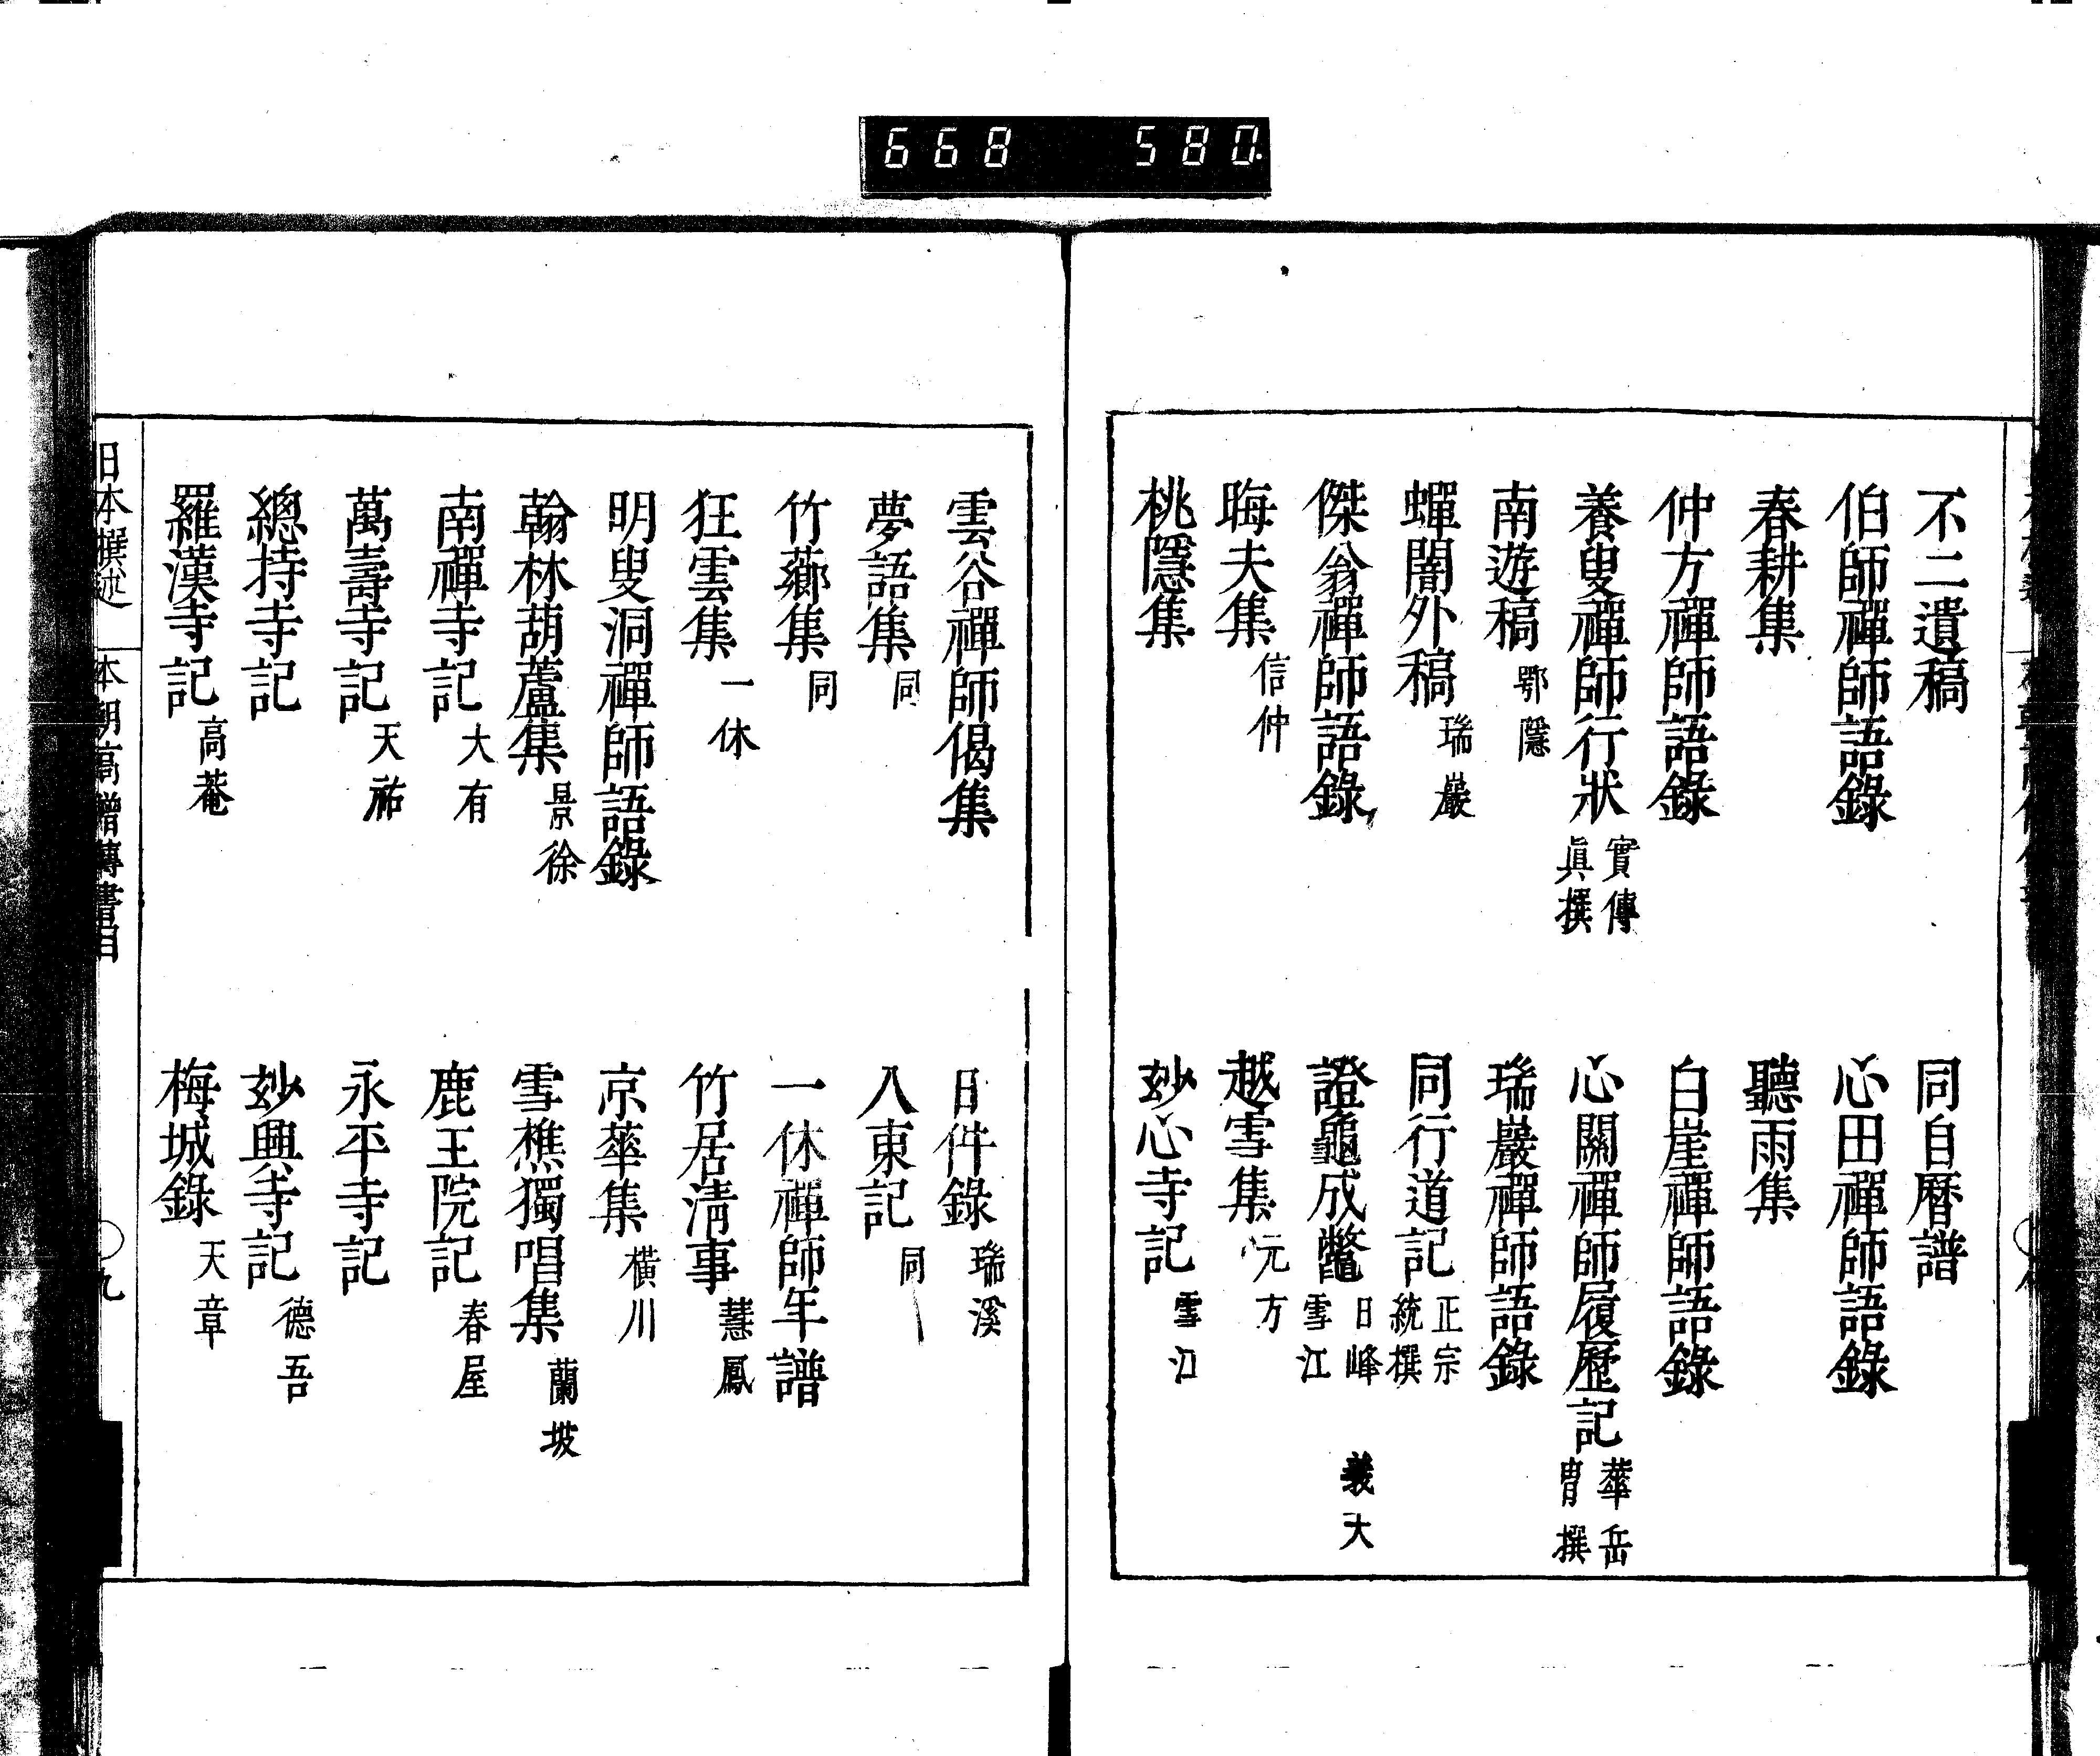 668 580.
不二遺稿 同自曆譜
伯師禪師語錄 心田禪師語錄
春耕集 聽雨集
仲方禪師語錄 白崖禪師語錄
養叟禪師行狀 實傳眞撰 心關禪師履歷記 華岳冑撰
南遊稿 鄂隱 瑞巖禪師語錄
蟬闇外稿 瑞巖 同行道記 正宗統撰
傑翁禪師語錄 證龜成鼈 日峰 義大 雪江
晦夫集 信仲 越雪集 元方
桃隱集 妙心寺記 雪江
雲谷禪師偈集 日件錄 瑞溪
夢語集 同 八東記 同
竹薌集 同 一休禪師年譜
狂雲集 一休 竹居淸事 慧鳳
明叟洞禪師語錄 京華集 橫川
翰林葫蘆集 景徐 雪樵獨唱集 蘭坡
南禪寺記 大有 鹿王院記 春屋
萬壽寺記 天祐 永平寺記
總持寺記 妙興寺記 德吾
羅漢寺記 高菴 梅城錄 天章
日本撰述 本朝高僧傳書目 九